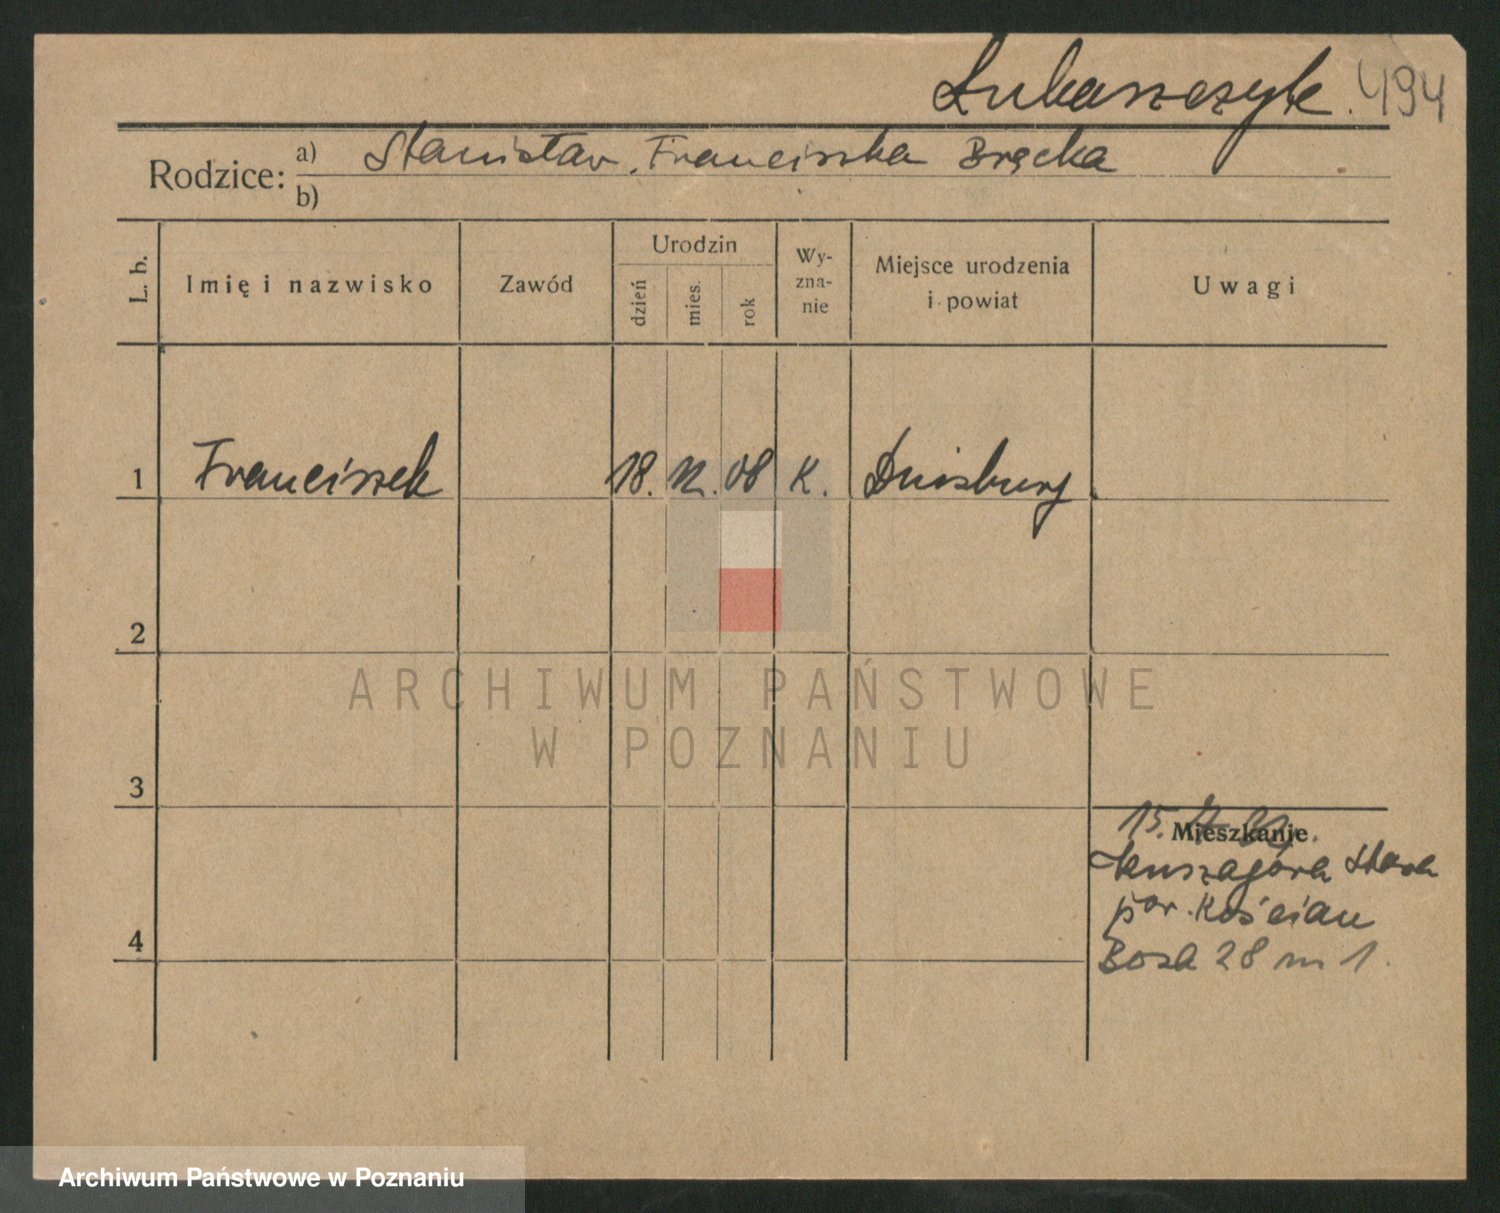 Łukaszczyk. 494
Rodzice: a) Stanisław, Franciszka Bręcka
b)
L. b.
Imię i nazwisko
Zawód
Urodzin
dzień
mies.
rok
Wy-
zna-
nie
Miejsce urodzenia
i powiat
Uwagi
1 Franciszek 18. 12. 08 K. Duisburg.
2
3
4
15.
Mieszkanie
Stara
pow. Kościan
28 m 1.
ARCHIWUM PAŃSTWOWE
W POZNANIU
Archiwum Państwowe w Poznaniu